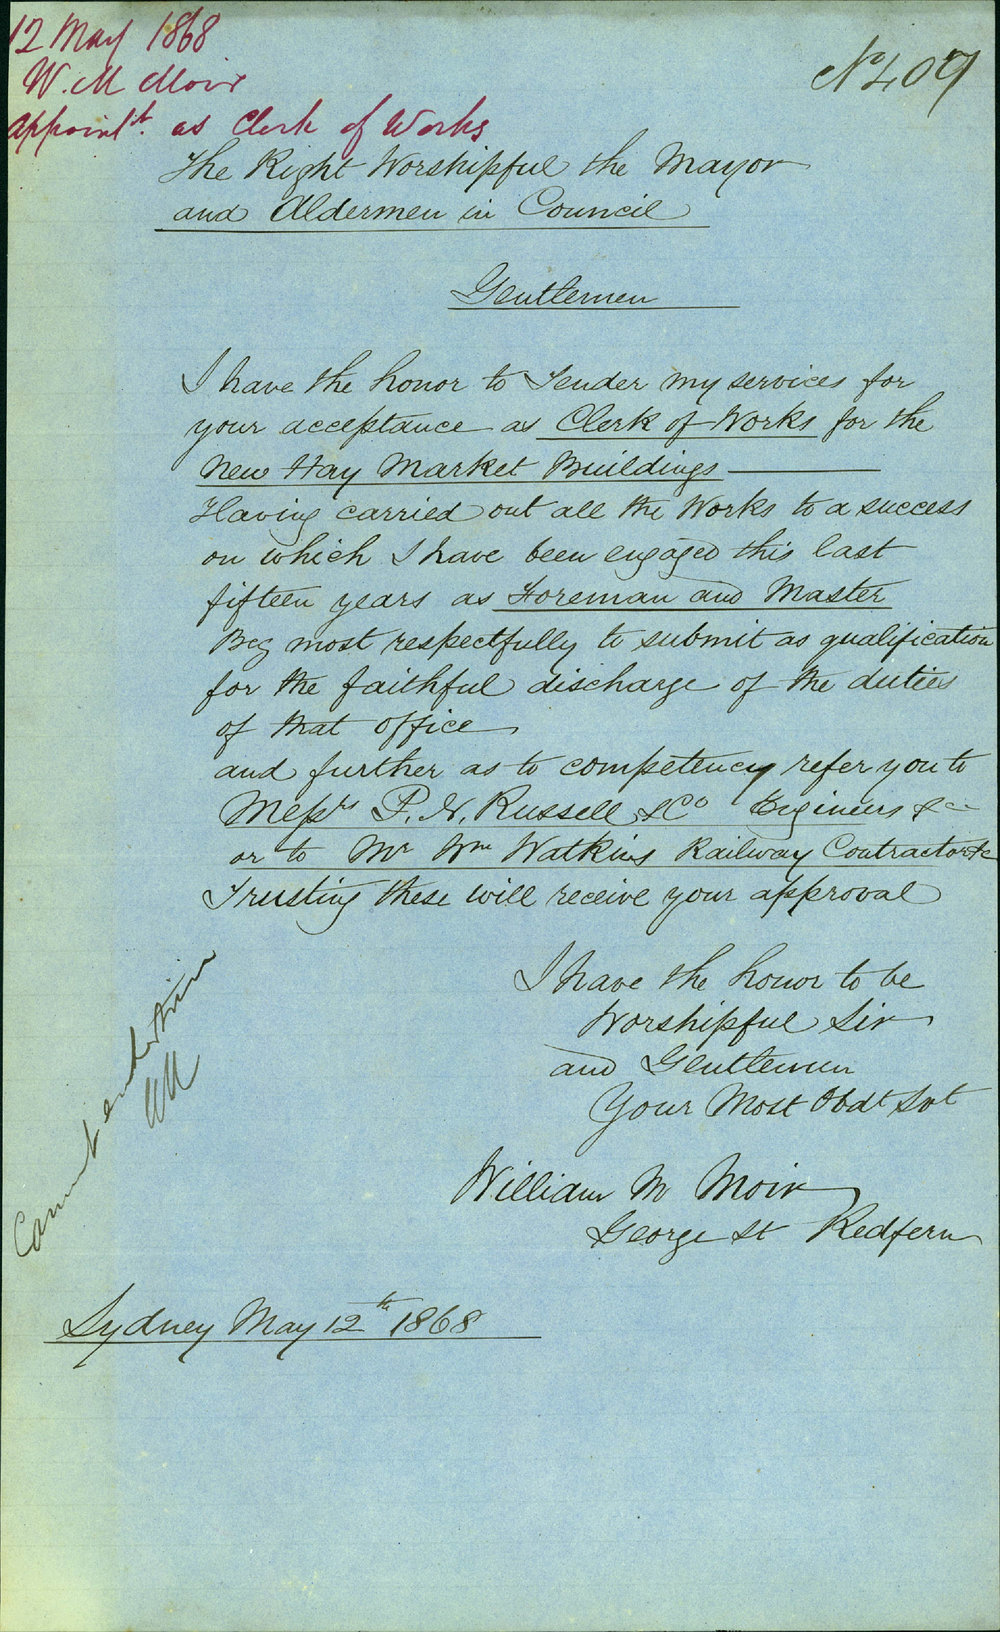 12 May 1868
W. M Moir
Appoint.t as Clerk of Works
No 409
The Right Worshipful the Mayor
and Aldermen in Council
Gentlemen
I have the honor to Tender my services for
your acceptance as Clerk of Works for the
New Hay Market Buildings
Having carried out all the Works to a success
on which I have been engaged this last
fifteen years as Foreman and Master
Beg most respectfully to submit as qualification
for the faithful discharge of the duties
of that office
and further as to competency refer you to
Messrs P. N. Russell & Co Engineers &c
or to Mr Wm Watkins Railway Contractor &c
Trusting these will receive your approval
I have the honor to be
Worshipful Sir
and Gentlemen
Your Most Obdt Svt
William M Moir
George St Redfern
Cannot entertain
Sydney May 12th 1868